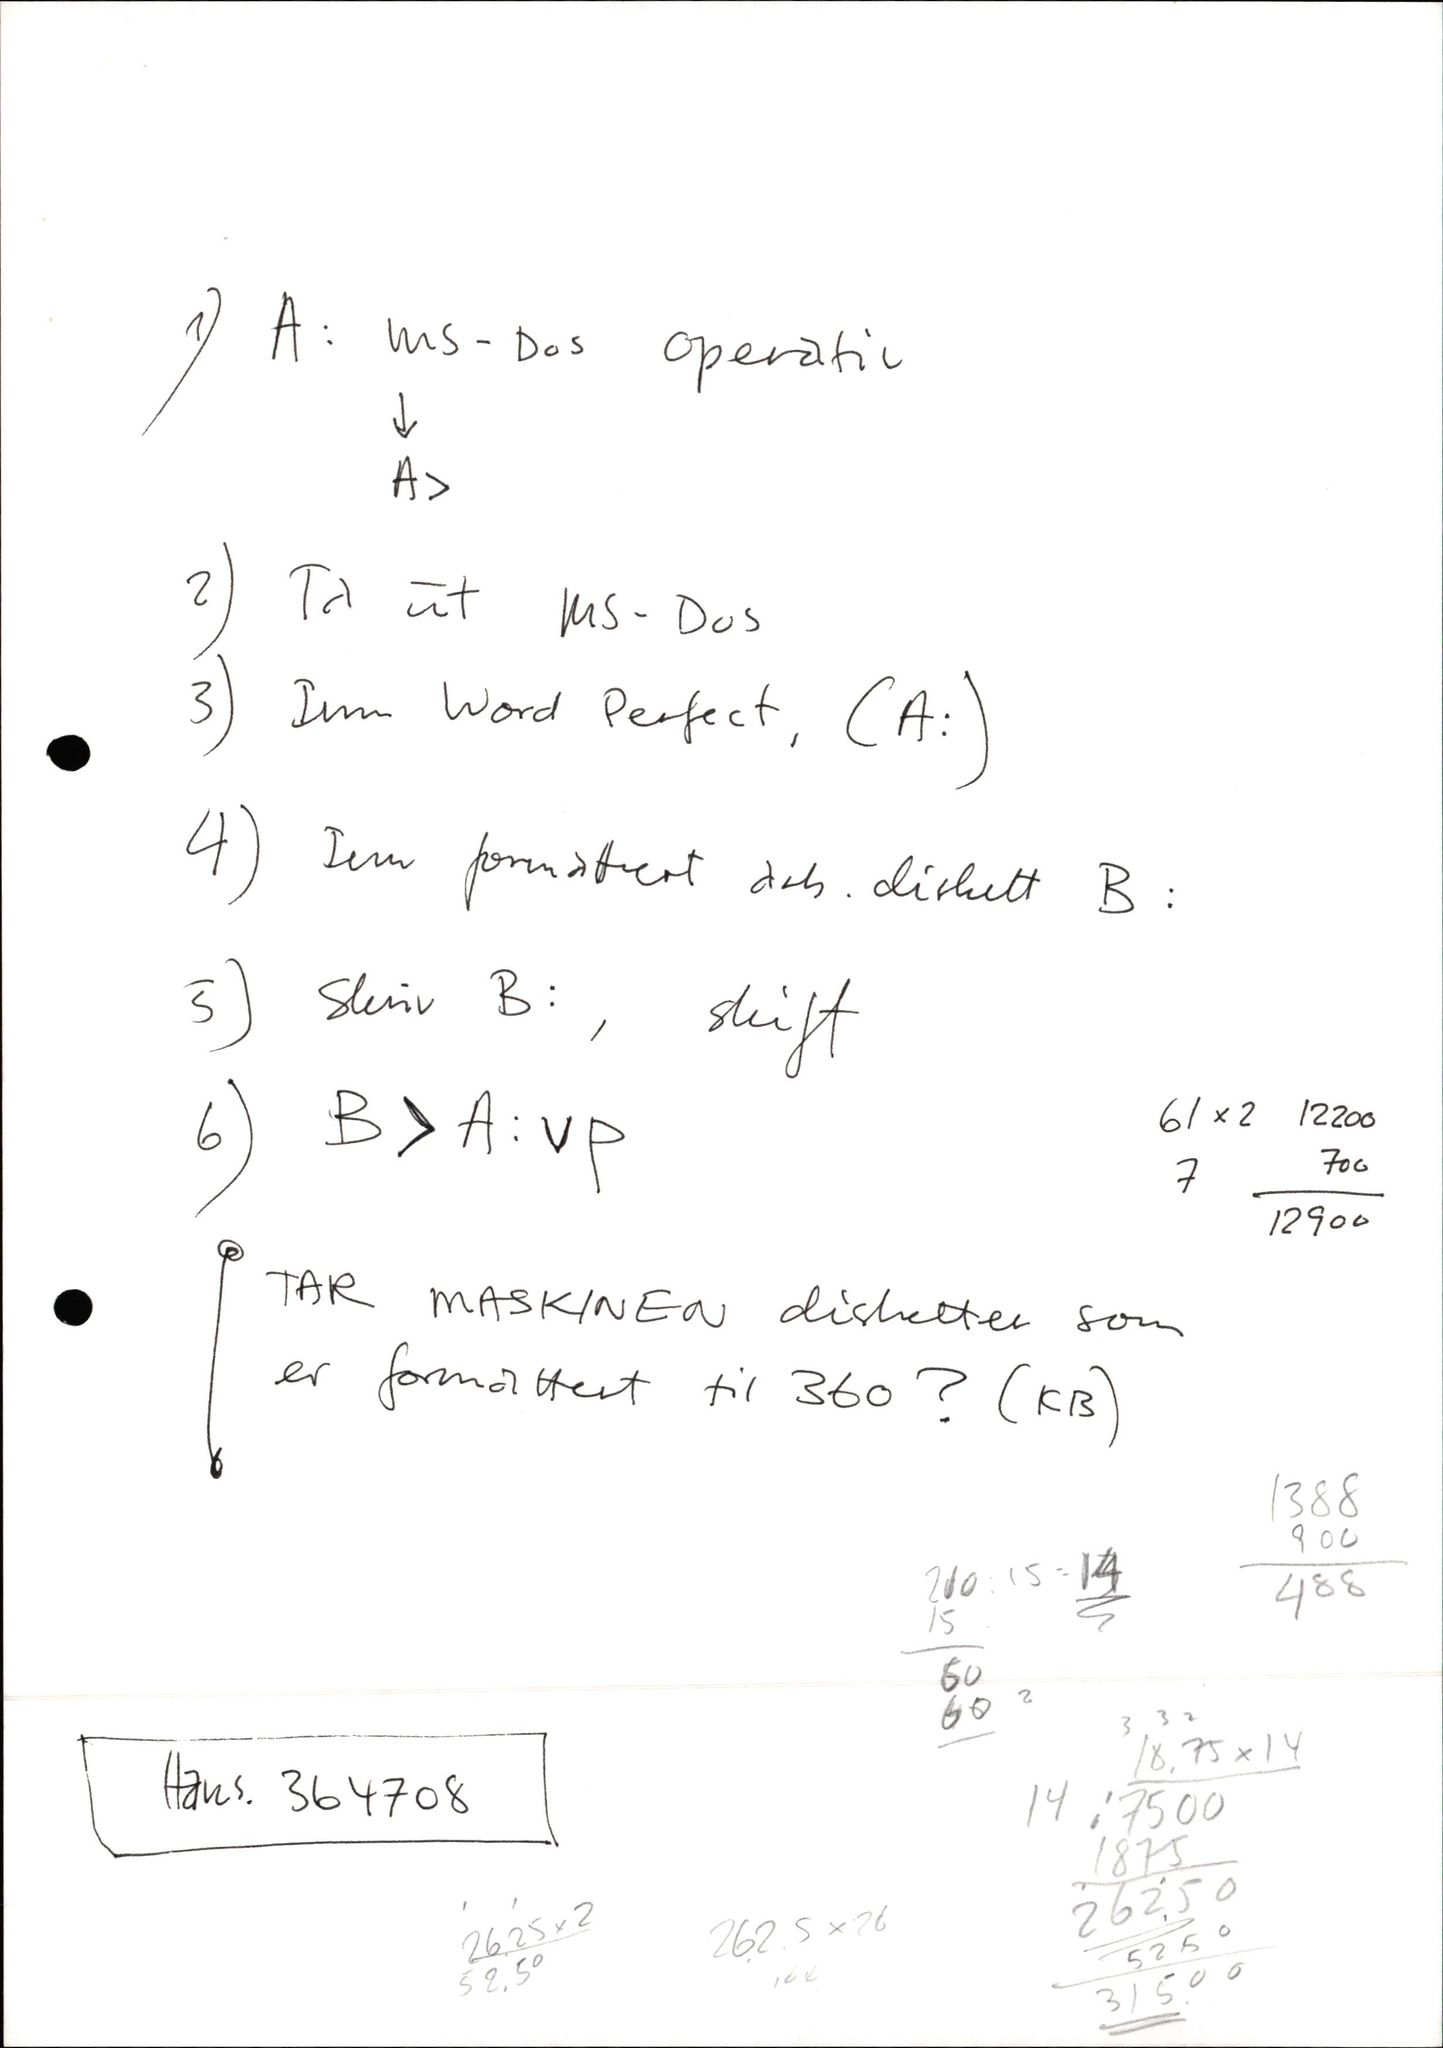 1) A: MS-Dos operativ
↓
A>
2) Ta ut MS-Dos
3) Inn Word Perfect, (A:)
4) Inn formattert arb. diskett B:
5) Skriv B:, skift
6) B>A:vp
61 x 2 12200
7 700
12900
TAR MASKINEN disketter som
er formattert til 360? (KB)
1388
900
488
210 : 15 = 14
15
60
60
3 3 2
18,75 x 14
14 7500
1875
262,50
5250
315,00
Hans. 364708
26,25 x 2
52,50
262,5 x 26